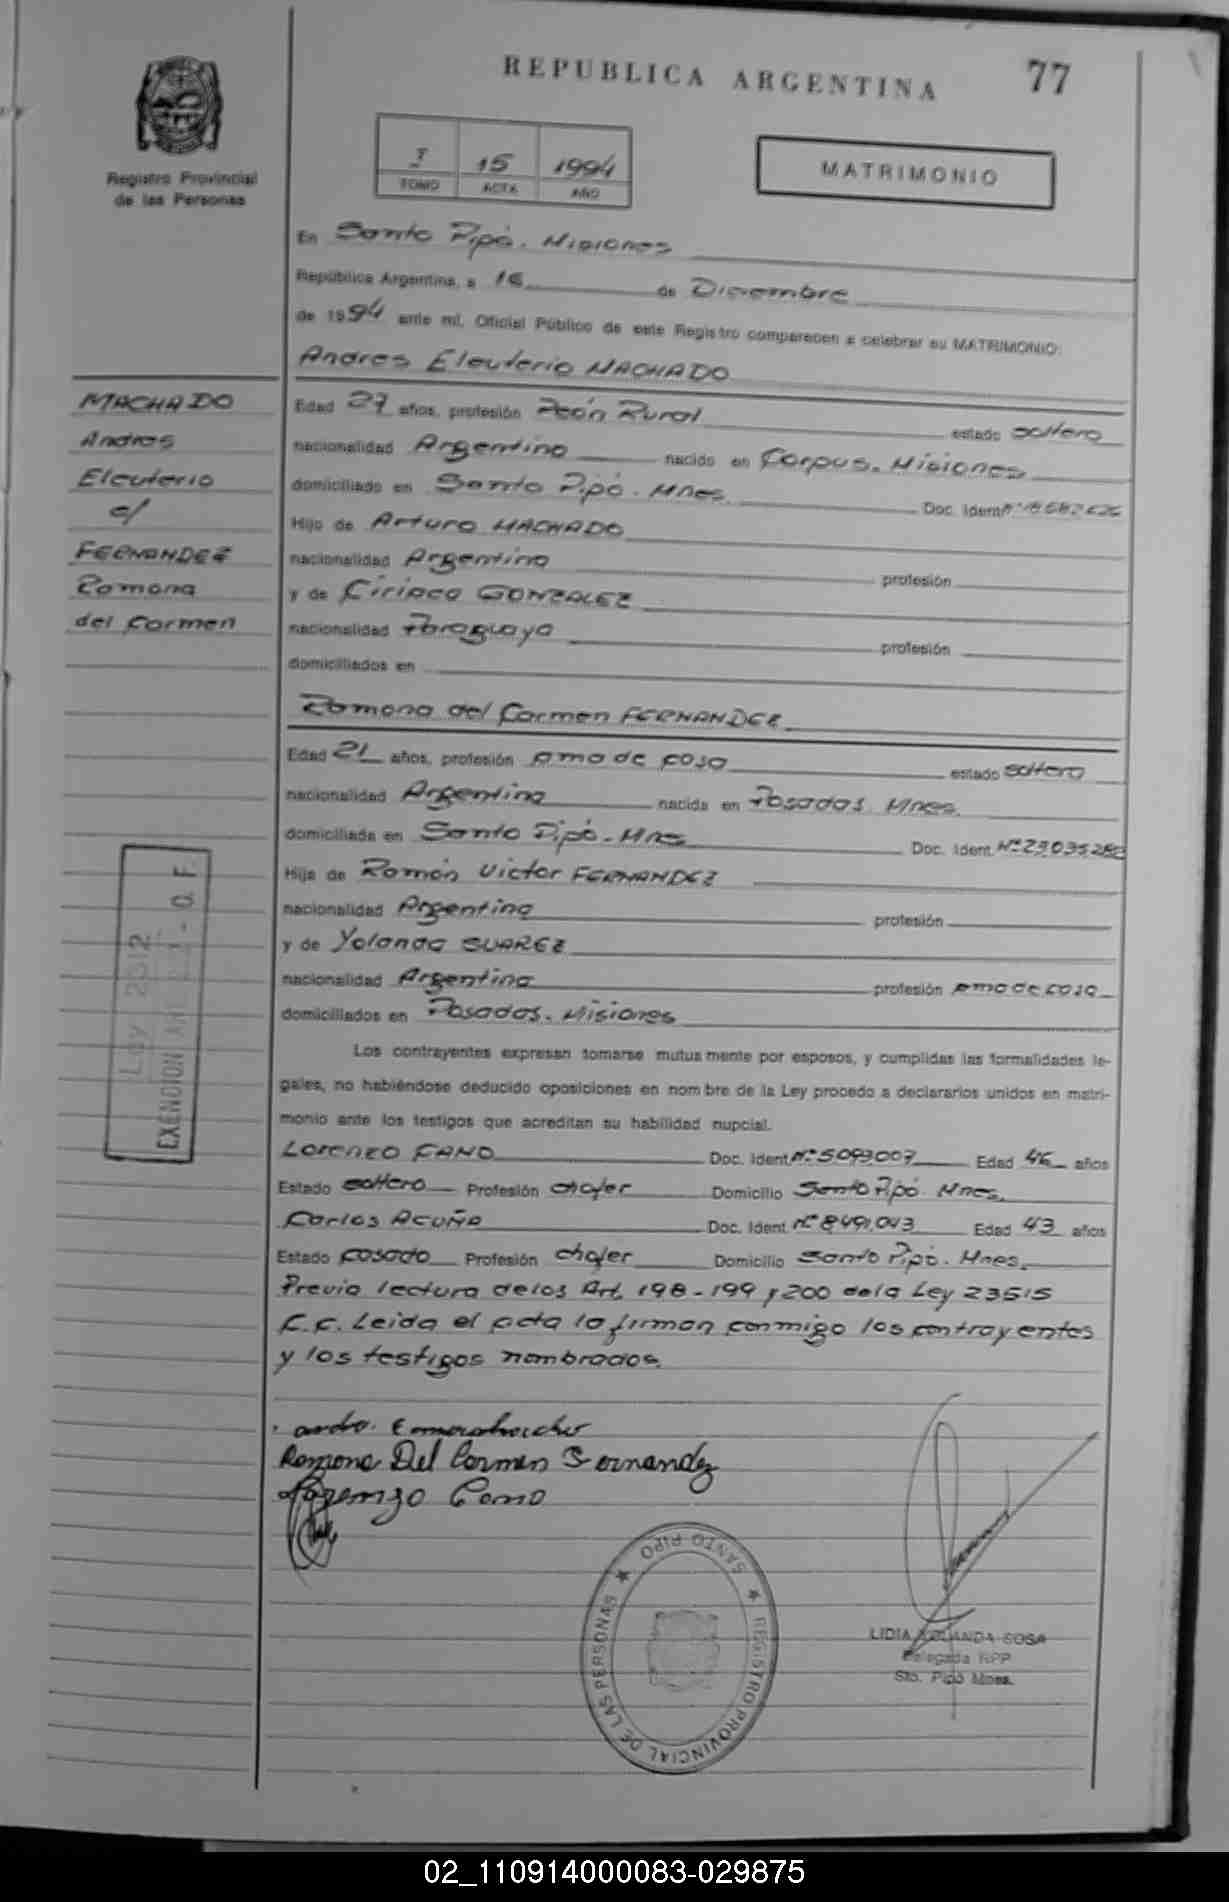 REPUBLICA ARGENTINA
77
Registro Provincial
de las Personas
I 15 1994
TOMO ACTA AÑO
MATRIMONIO
En Santo Pipó. Misiones
República Argentina, a 16 de Diciembre
de 1994 ante mí, Oficial Público de este Registro comparecen a celebrar su MATRIMONIO:
Andres Eleuterio MACHADO
MACHADO
Andres
Eleuterio
c/
FERNANDEZ
Ramona
del Carmen
Edad 27 años, profesión Peón Rural estado soltero
nacionalidad Argentino nacido en Corpus. Misiones
domiciliado en Santo Pipó. Mnes. Doc. Ident Nº
Hijo de Arturo MACHADO
nacionalidad Argentino profesión
y de Ciriaca GONZALEZ
nacionalidad Paraguaya profesión
domiciliados en
Ramona del Carmen FERNANDEZ
Edad 21 años, profesión ama de casa estado soltera
nacionalidad Argentina nacida en Posadas. Mnes.
domiciliada en Santo Pipó. Mnes Doc. Ident. Nº 23.035.280
Hija de Ramón Victor FERNANDEZ
nacionalidad Argentino profesión
y de Yolanda SUAREZ
nacionalidad Argentina profesión ama de casa
domiciliados en Posadas. Misiones
Ley 2512
EXENCION - Q. F.
Los contrayentes expresan tomarse mutuamente por esposos, y cumplidas las formalidades le-
gales, no habiéndose deducido oposiciones en nombre de la Ley procedo a declararlos unidos en matri-
monio ante los testigos que acreditan su habilidad nupcial.
Lorenzo CANO Doc. Ident Nº 5.093.007 Edad 46 años
Estado soltero Profesión chofer Domicilio Santo Pipó. Mnes.
Carlos ACUÑA Doc. Ident. Nº 8.491.043 Edad 43 años
Estado casado Profesión chofer Domicilio Santo Pipó. Mnes.
Previa lectura de los Art. 198-199 y 200 de la Ley 23515
C.C. Leida el acta la firman conmigo los contrayentes
y los testigos nombrados.
Ramona Del Carmen Fernandez
Lorenzo Cano
SANTO PIPO ★ REGISTRO PROVINCIAL DE LAS PERSONAS ★
LIDIA YOLANDA SOSA
Delegada RPP
Sto. Pipó Mnes.
02_110914000083-029875